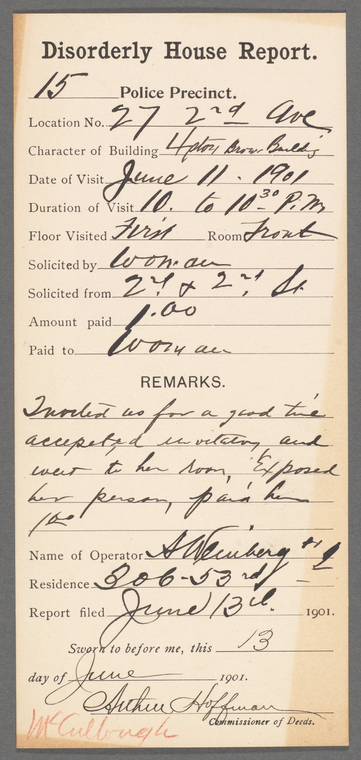 Disorderly House Report.
15 Police Precinct.
Location No. 27 2nd Ave
Character of Building 4 story Brow. Building
Date of Visit June 11 - 1901
Duration of Visit 10. to 10 30 P.M
Floor Visited First Room Front
Solicited by woman
Solicited from 2nd & 2nd St
Amount paid 1.00
Paid to woman
REMARKS.
Invited us for a good time
accepeted invitation and
went to her room, Exposed
her person, paid her
1 00
Name of Operator A Weinberg
Residence 306-53rd
Report filed June 13d. 1901.
Sworn to before me, this 13
day of June 1901.
Arthur Hoffman
Commissioner of Deeds.
McCullough